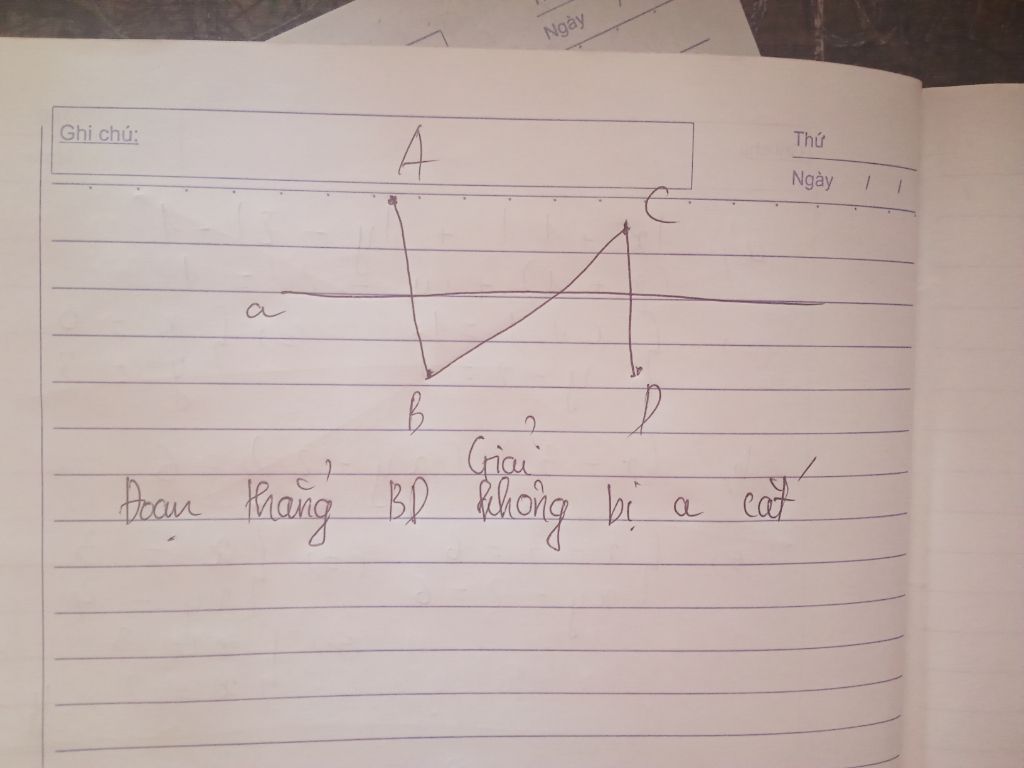 Ngày /
Ghi chú:
Thứ
Ngày / /
A
C
a
B
D
Giải
Đoạn thẳng BD không bị a cắt